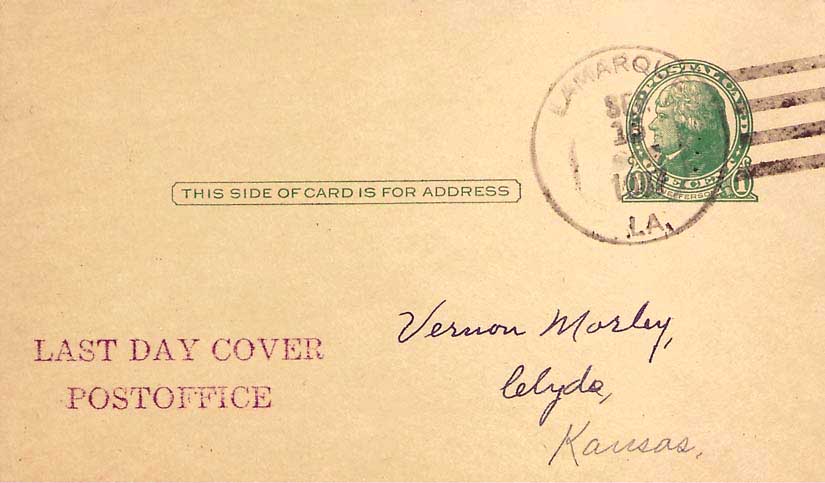 LAMARQUE
SE
LA.
JEFFERSON
THIS SIDE OF CARD IS FOR ADDRESS
LAST DAY COVER
POSTOFFICE
Vernon Morley,
Clyde,
Kansas.